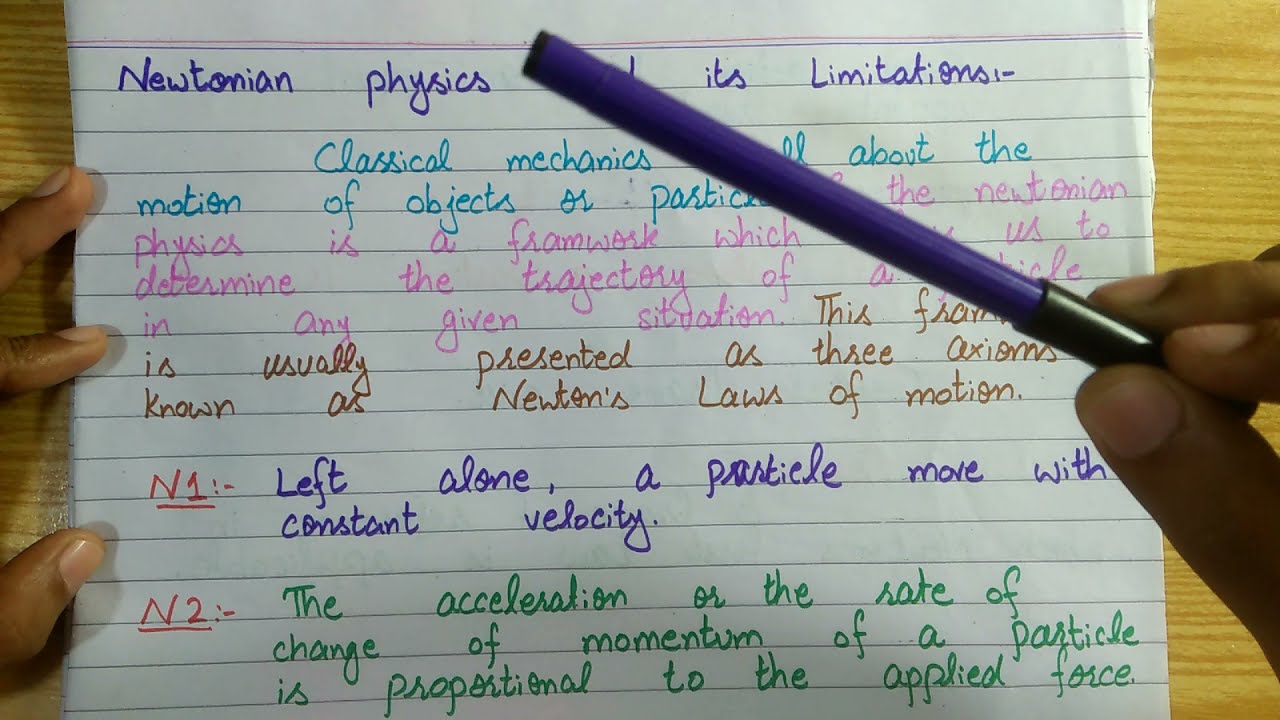 Newtonian physics its Limitations:-
Classical mechanics about the
motion of objects or the newtonian
physics is a framwork which us to
determine the trajectory of a
in any given sitution. This
is usually presented as three axioms
known as Newton's Laws of motion.
N1:- Left alone, a particle move with
constant velocity.
N2:- The acceleration or the rate of
change of momentum of a particle
is propotional to the applied force.